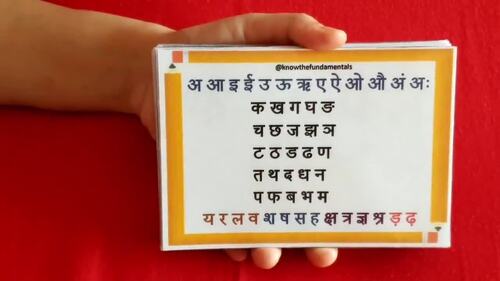 @knowthefundamentals
अ आ इ ई उ ऊ ऋ ए ऐ ओ औ अं अः
क ख ग घ ङ
च छ ज झ ञ
ट ठ ड ढ ण
त थ द ध न
प फ ब भ म
य र ल व श ष स ह क्ष त्र ज्ञ श्र ड़ ढ़